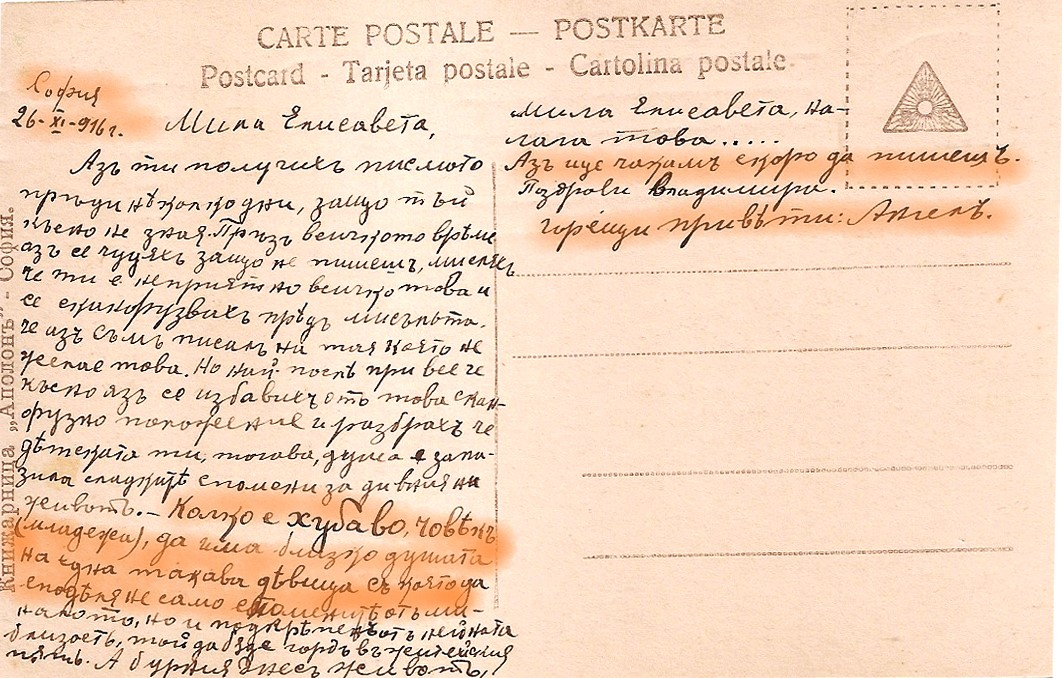 CARTE POSTALE — POSTKARTE
Postcard - Tarjeta postale - Cartolina postale
София
26-XI-916 г.
Мила Елисавета,
Азъ ти получихъ писмото
прѣди нѣколко дни, защо тъй
късно не зная. Прѣзъ всичкото врѣме
азъ се чудѣхъ защо не пишешъ, мислѣхъ
че ти е неприятно всичко това и
се сконфузвахъ прѣдъ мисъльта.
че азъ съмъ писалъ на тая която не
желае това. Но най-послѣ при все че
късно азъ се избавихъ отъ това скон-
фузно положение и разбрахъ че
дѣтската ти, тогава, душа е запа-
зила сладкитѣ спомени за дивния ни
животъ. – Колко е хубаво, човѣкъ
(младежа), да има близко душата
на една такава дѣвица съ която да
сподѣля не само споменитѣ отъ ми-
налото, но и подкрѣпенъ отъ нейната
близость, той да бѫде гордъ въ житейския
пѫть. А бурния днесъ животъ,
Мила Елисавета, на-
лага това.....
Азъ ще чакамъ скоро да пишешъ.
Поздрави Владимира.
Горѣщи привѣти: Ангелъ.
Книжарница „Аполонъ" - София.